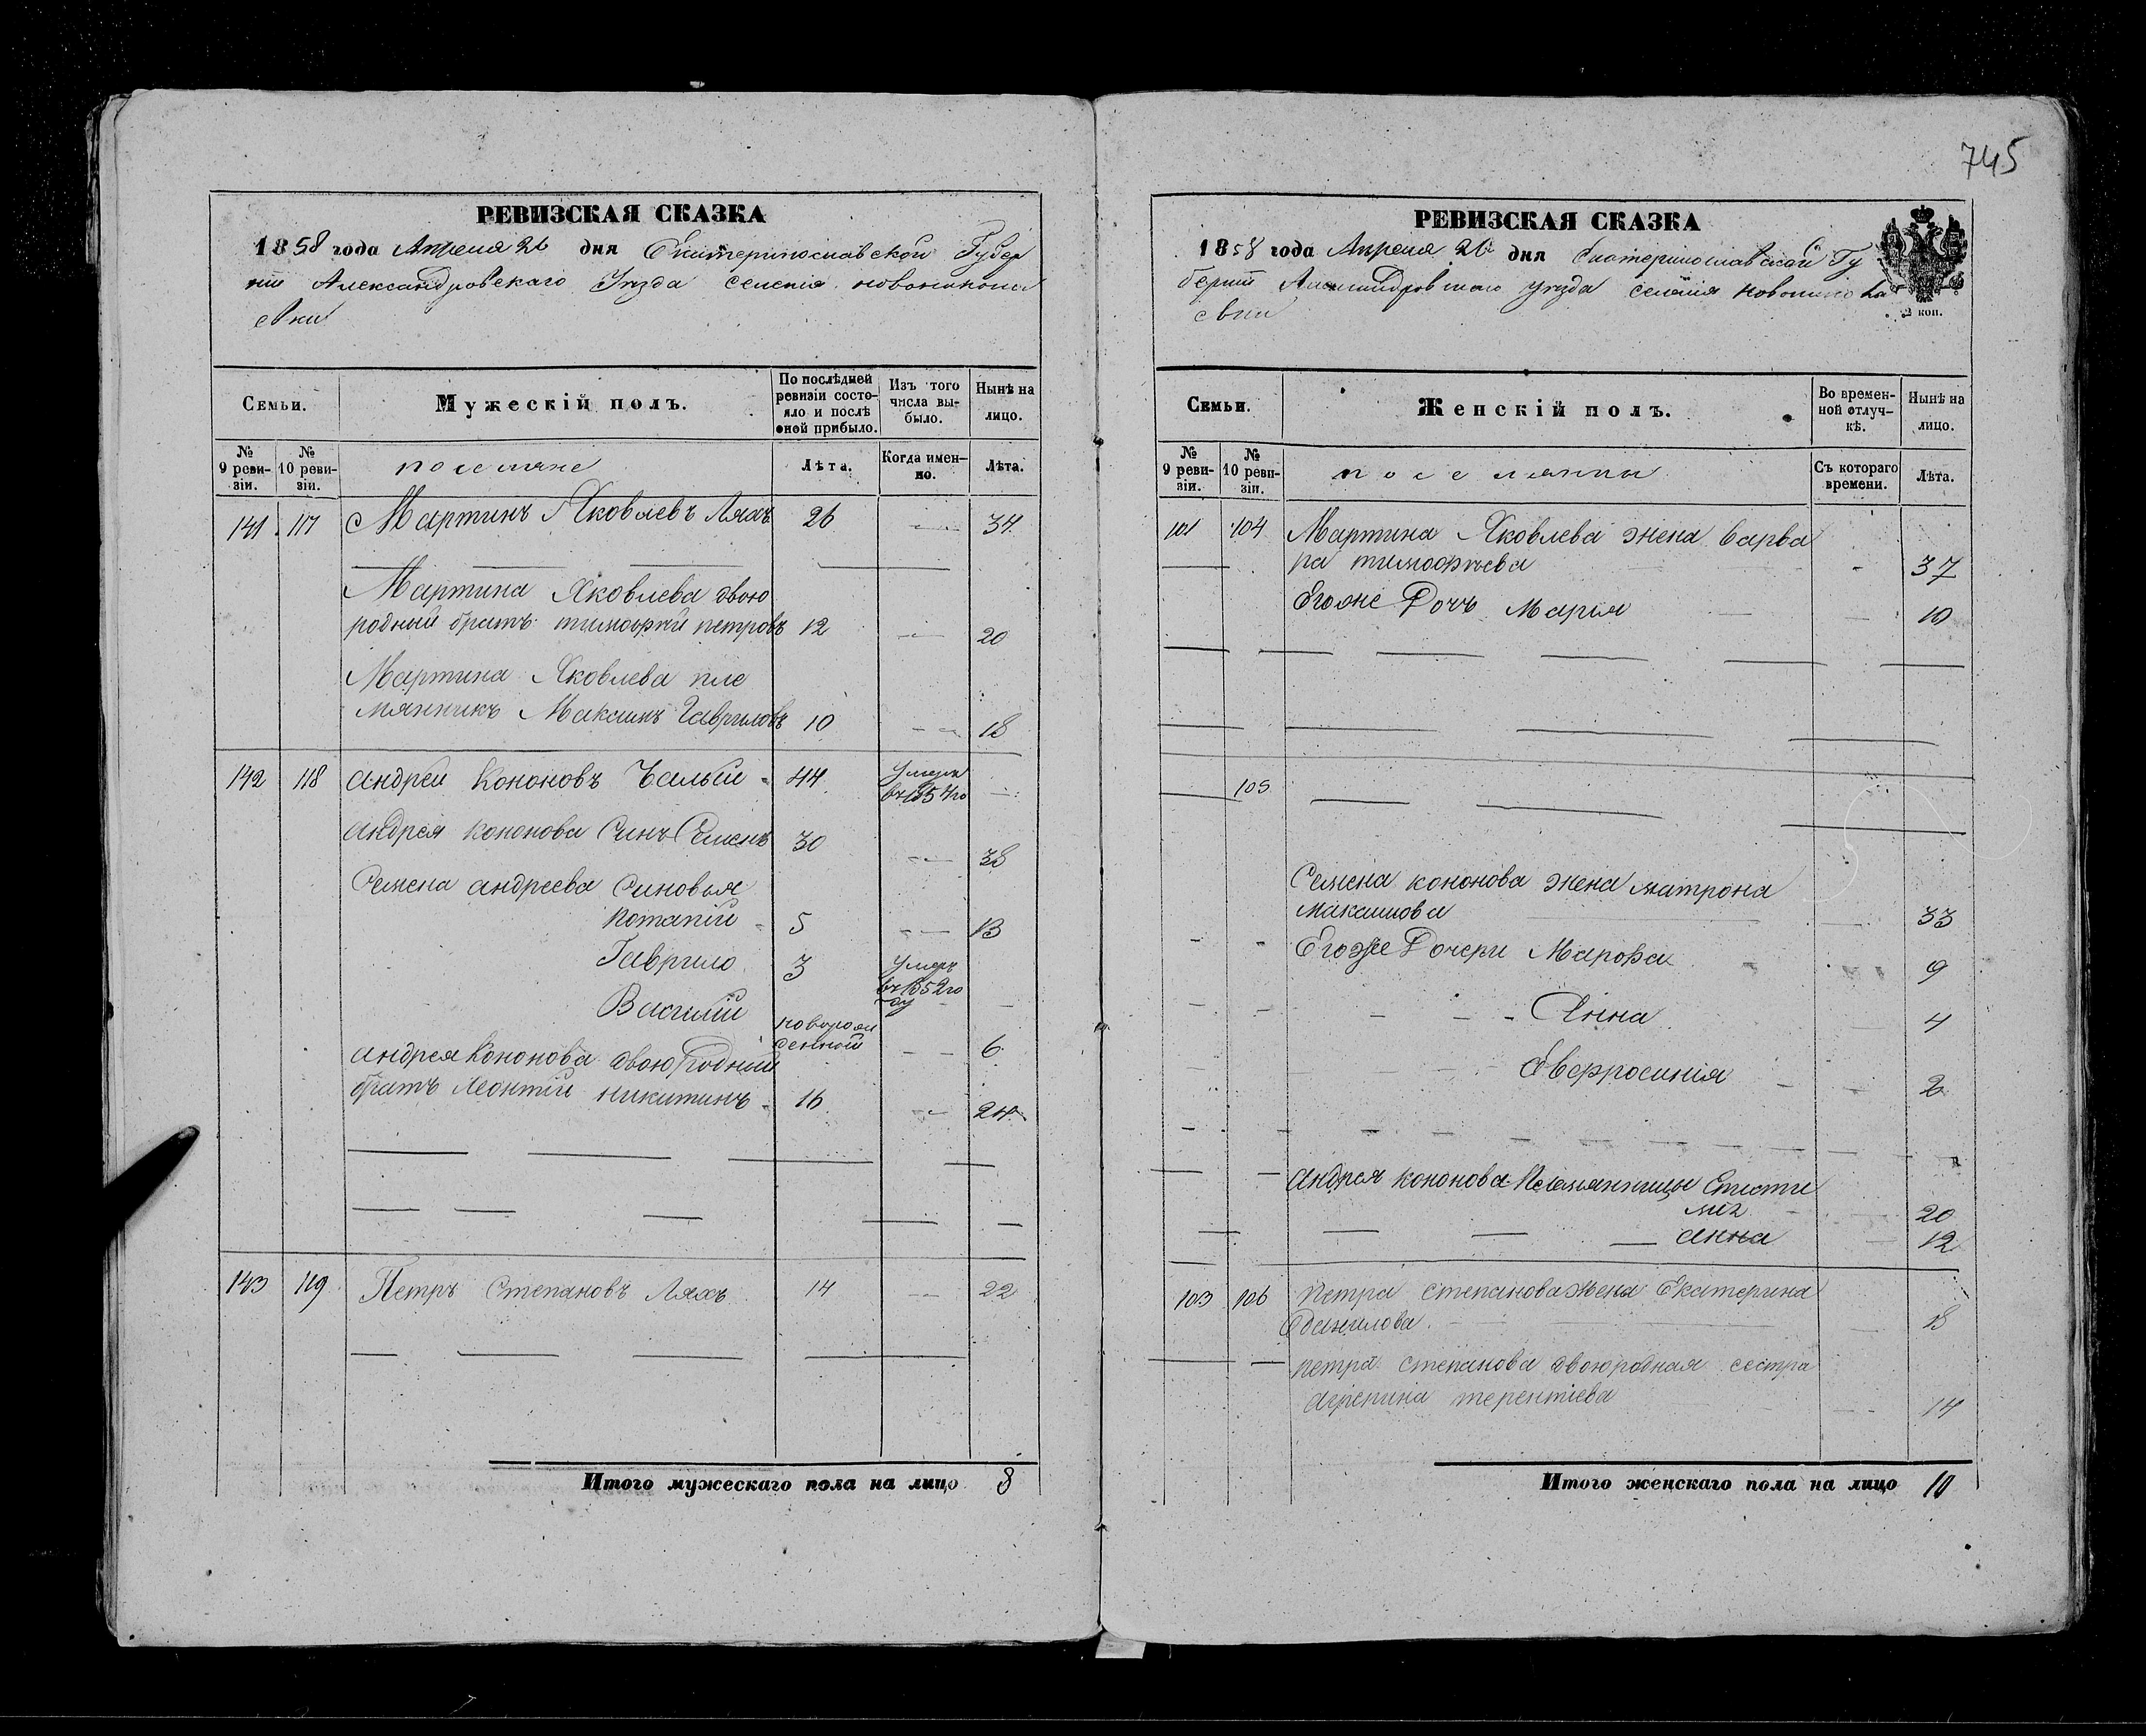 745
РЕВИЗСКАЯ СКАЗКА
1858 года Апреля 26 дня Екатеринославской Губер
нiи Александровскаго Уезда селенiя
Семьи.
Мужескій полъ.
По послѣдней ревизіи состояло и послѣ оной прибыло.
Изъ того числа выбыло.
Нынѣ на лицо.
№ 9 ревизіи.
№ 10 ревизіи.
поселяне
Лѣта.
Когда именно.
Лѣта.
141 117 Мартинъ Яковлевъ Ляхъ 26 — 34
Мартина Яковлева двою
родный братъ тимофей петровъ 12 — 20
Мартина Яковлева пле
мянникъ Максимъ Гавриловъ 10 — 18
142 118 андрей Кононовъ 44 умеръ
въ 1854 го —
андрея кононова Синъ Семенъ 30 — 38
Семена андреева Синовья
потапiй 5 — 13
Гаврило 3 умеръ
въ 1852 го
ду —
Василiй новорож
денной — 6
андрея Кононова двоюродний
братъ Леонтiй никитинъ 16 — 24
143 119 Петръ Степановъ Ляхъ 14 — 22
Итого мужескаго пола на лицо 8
РЕВИЗСКАЯ СКАЗКА
1858 года Апреля 26 дня Екатеринославской Гу
бернiи Александровскаго уезда селенiя
2 коп.
Семьи.
Женскій полъ.
Во временной отлучкѣ.
Нынѣ на лицо.
№ 9 ревизіи.
№ 10 ревизіи.
поселянки
Съ котораго времени.
Лѣта.
101 104 Мартина Яковлева жена варва
ра тимофеева — 37
Егоже Дочъ Марiя — 10
105
Семена кононова жена матрона
максимова 33
Егоже Дочери Марфа 9
Анна 4
Евфросинiя 2
андрея кононова племянницы
20
анна 12
103 106 петра степанова жена Екатерина
данилова 18
петра степанова двоюродная сестра
агрепина терентiева 14
Итого женскаго пола на лицо 10